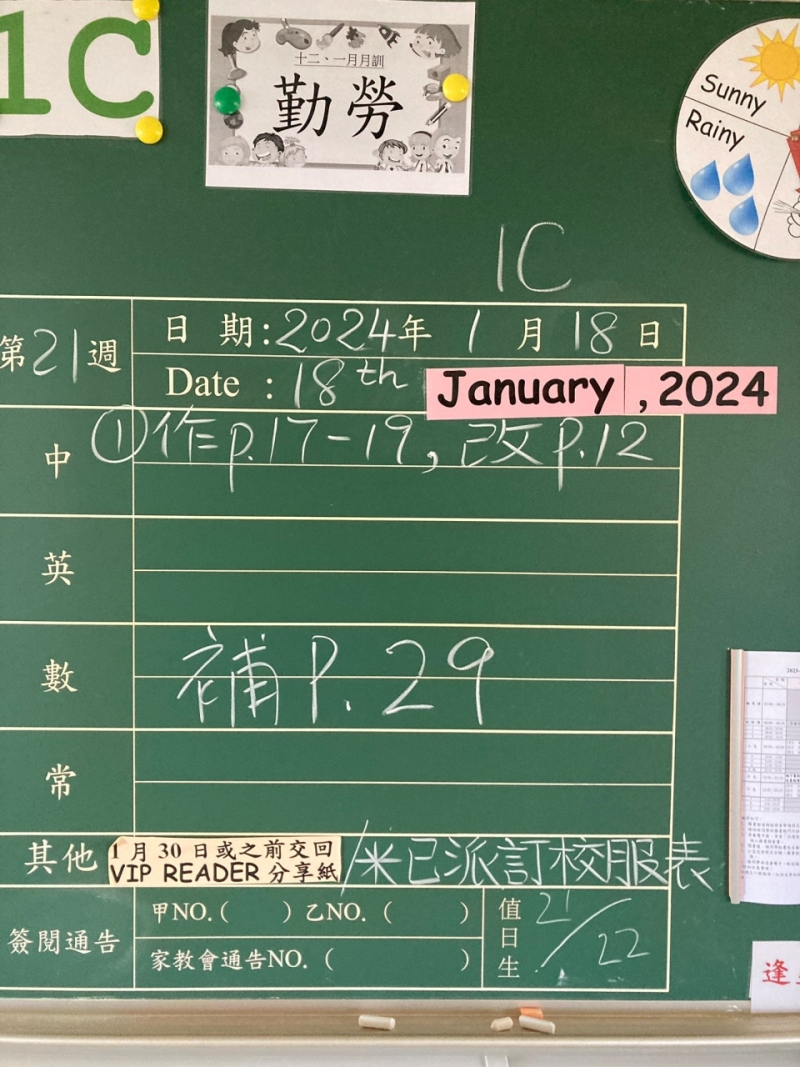 1C
十二、一月月訓
勤勞
Sunny
Rainy
1C
第21週
日期:2024年1月18日
Date : 18th January, 2024
中 ①作p.17-19, 改p.12
英
數 補P.29
常
其他 1月30日或之前交回 VIP READER 分享紙 /米已派訂校服表
簽閱通告
甲NO.( ) 乙NO.( )
家教會通告NO.( )
值日生 21/22
逢